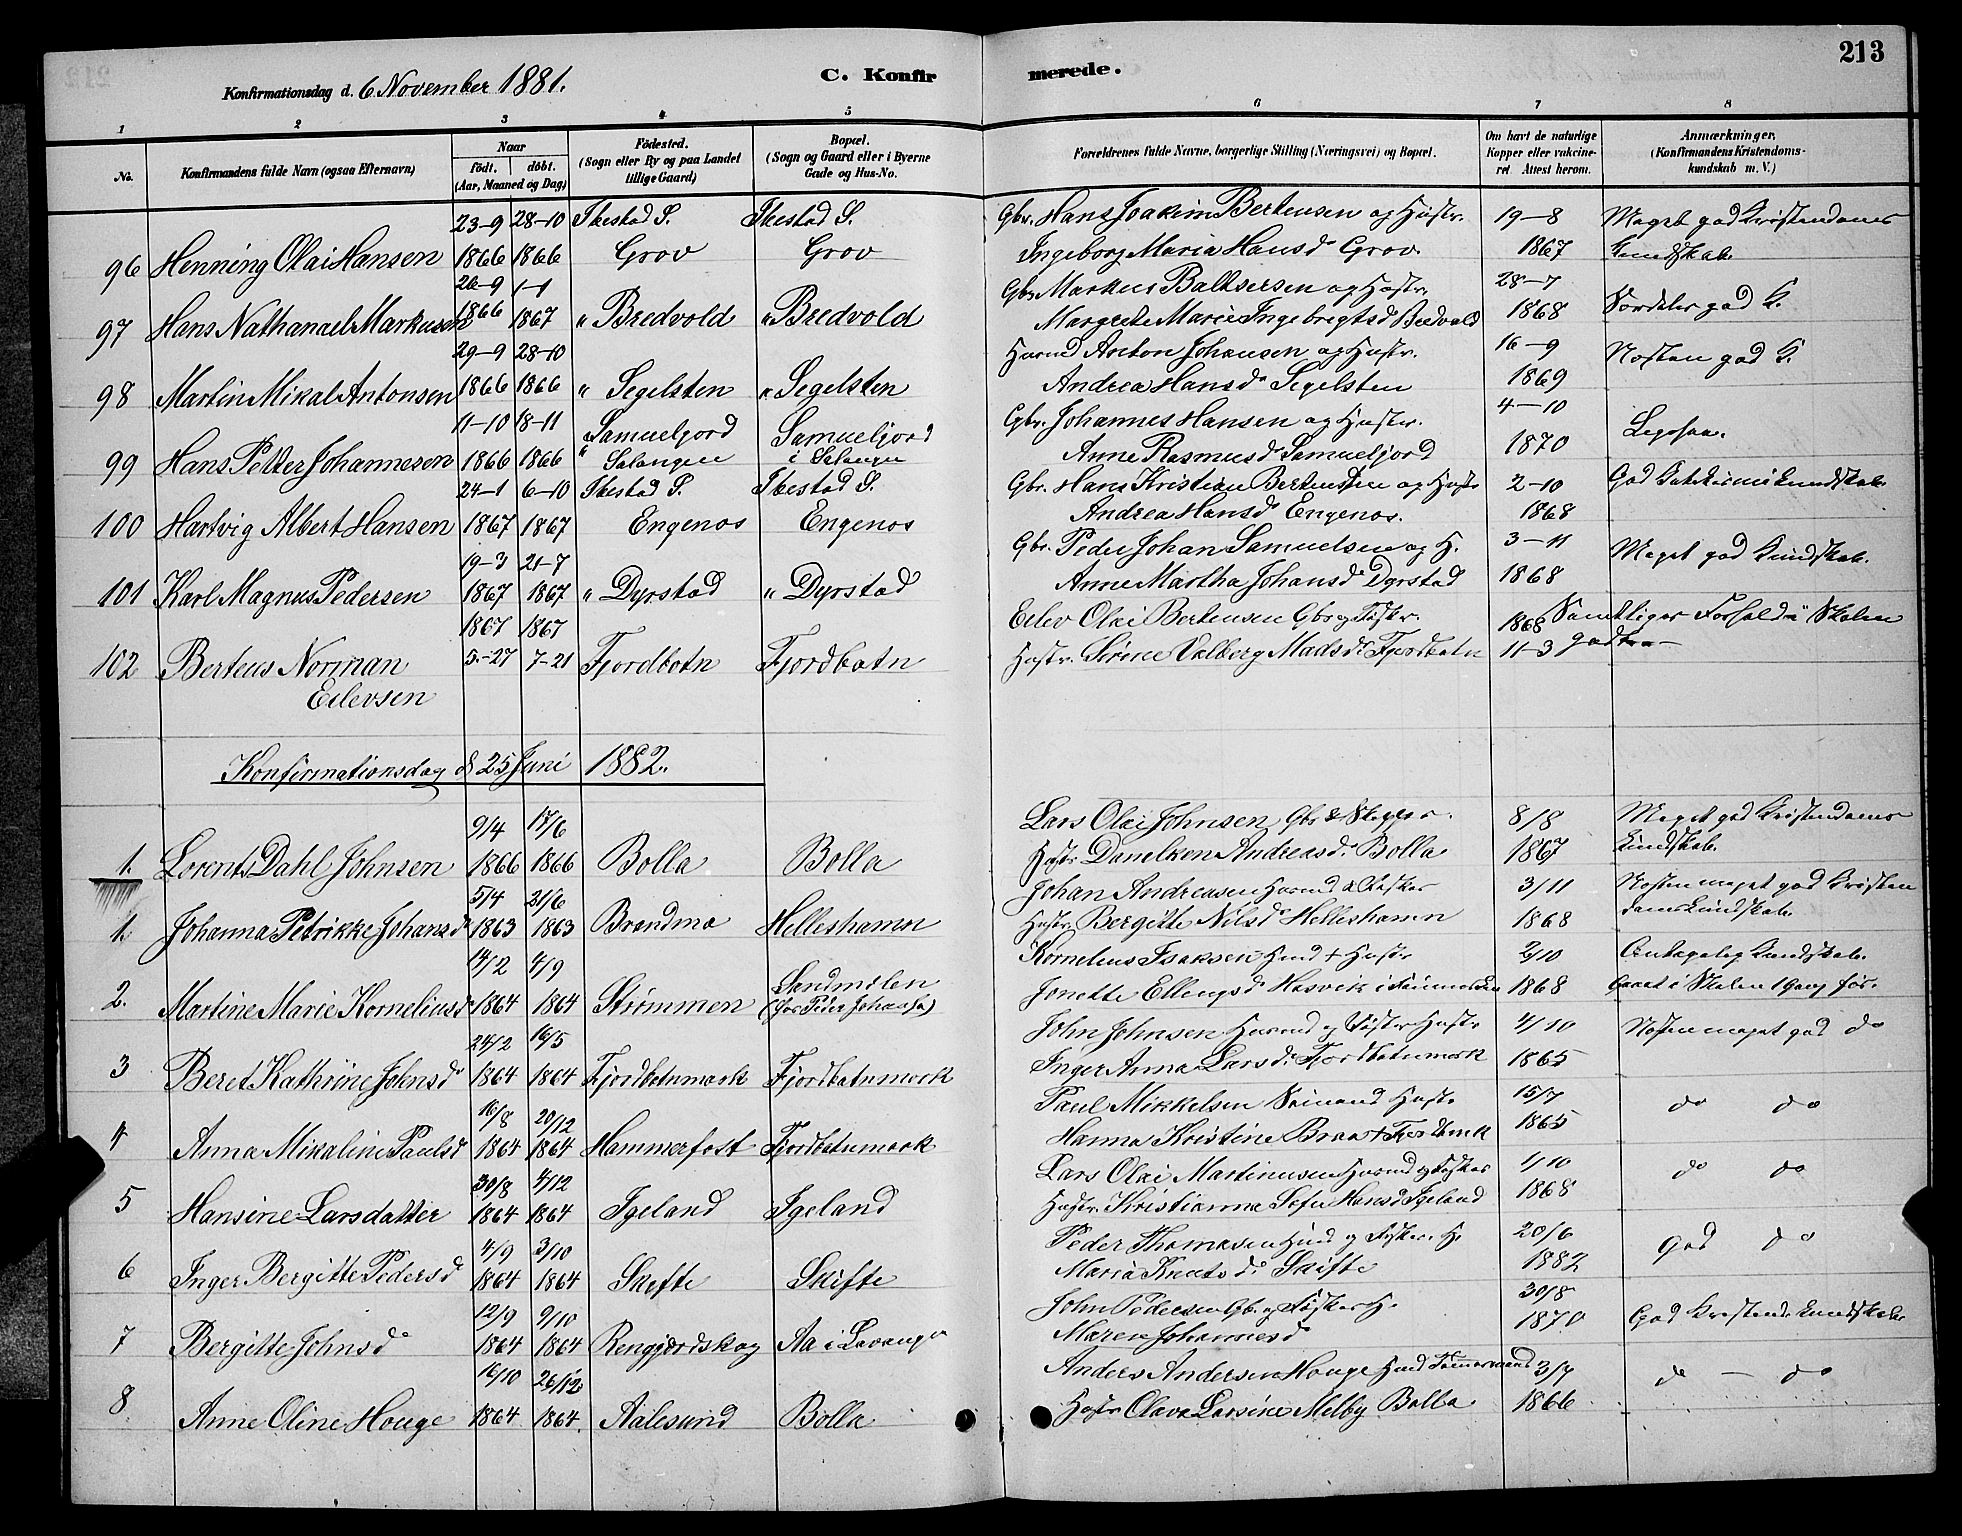 213
C. Konfirmerede.
Konfirmationsdag d. 6 November 1881.
1 2 3 4 5 6 7 8
No. Konfirmandens fulde Navn (ogsaa Efternavn) Naar födt. döbt. (Aar, Maaned og Dag) Födested. (Sogn eller By og paa Landet tillige Gaard) Bopæl. (Sogn og Gaard eller i Byerne Gade og Hus-No. Forældrenes fulde Navne, borgerlige Stilling (Næringsvei) og Bopæl. Om havt de naturlige Kopper eller vakcineret. Attest herom. Anmærkninger, (Konfirmandens Kristendomskundskab m. V.)
23-9 28-10 Ibestad S. Ibestad S. Gbr. Hans Joakim Bertensen og Hustr. 19-8 Meget god Kristendoms
96 Henning Olai Hansen 1866 1866 Grov Grov Ingeborg Maria Hansd. Grov. 1867 Kundskab.
26-9 1-1 Gbr. Markus Balthsersen og Hustr. 28-7
97 Hans Nathanael Markusen 1866 1867 " Bredvold " Bredvold Margrete Marie Ingebrigtsd Bredvold 1868 Særdeles god K.
29-9 28-10 Huusmd Anton Johansen og Hustr. 16-9 Næsten god K.
98 Martin Mikal Antonsen 1866 1866 " Segelsten " Segelsten Andrea Hansd. Segelsten 1869
11-10 18-11 Samueljord Samueljord Gbr. Johannes Hansen og Hustr. 4-10
99 Hans Petter Johannesen 1866 1866 " Salangen i Salangen Anne Rasmusd Samueljord 1870 Ligesaa.
24-1 6-10 Ibestad S. Ibestad S. Gbr. Hans Kristian Bertensen og Hustr 2-10 God Katekismikundskab
100 Hartvig Albert Hansen 1867 1867 Engenos Engenos Andrea Hansd. Engenos. 1868
19-3 21-7 Gbr. Peder Johan Samuelsen og H. 3-11 Meget god Kundskab.
101 Karl Magnus Pedersen 1867 1867 " Dyrstad " Dyrstad Anne Martha Johansd. Dyrstad 1868
1867 1867 Eilev Olai Bertensen Gbr og Fisker. 1868 Samtliges Forhold i Skolen
102 Berteus Norman 5.-27 7-21 Fjordbotn Fjordbotn Hustr. Sirine Valberg Madsd. Fjordbotn 11-3 godt
Eilevsen
Konfirmationsdag d 25 Juni 1882.
9/4 17/6 Lars Olai Johnsen Gbr & Skipper. 8/8 Meget god Kristendoms
1. Lorents Dahl Johnsen 1866 1866 Bolla Bolla Hustr Danelken Andreasd. Bolla 1867 Kundskab.
5/4 21/6 Johan Andreasen Husmd & Fisker 3/11 Næsten meget god Kristen
1. Johanna Petrikke Johansd 1863 1863 Brandmo Helleshamn Hustr. Bergitte Nilsd. Helleshamn 1868 domskundskab.
14/2 4/9 Kornelius Isaksen Husmd + Hustr 2/10 Antagelig Kundskab.
2. Martine Marie Korneliusd 1864 1864 Strømmen Sandmoen (hos Peder Johans) Jonette Ellingsd Hasvik i Finmarken 1868 Gaaet i Skolen 1 Gang før.
24/2 16/5 John Johnsen Husmd og Fisker Hustr 4/10 Næsten meget god do
3 Beret Kathrine Johnsd 1864 1864 Fjordbotnmark Fjordbotnmark Inger Anna Larsd. Fjordbotnmark 1865
16/8 20/12 Paul Mikkelsen Hustr 15/7 do do
4 Anna Mikaline Paulsd 1864 1864 Hammerfest Fjordbotnmark Hanna Kristine 1865
30/8 4/12 Lars Olai Martinusen Husmd og Fisker 1/10 do do
5 Hansine Larsdatter 1864 1864 Igeland Igeland Hustr. Kristianna Sofie Hansd Igeland 1868
4/9 3/10 Peder Thomasen Husmd og Fisker H. 20/6 God do
6 Inger Bergitte Pedersd 1864 1864 Skifte Skifte Maria Knutsd. Skifte 1882
12/9 9/10 John Pedersen Gb. og Fisker H. 30/8
7 Bergitte Johnsd 1864 1864 Rengjærdskog Aa i Lavangen Maren Johannesd 1870 God Kristend. Kundskab
16/10 26/12 Anders Andersen Houge Husmd Tømmermand 3/7 do - do
8 Anne Oline Houge 1864 1864. Aalesund Bolla Hustr Olava Larsine Melby Bolla 1866